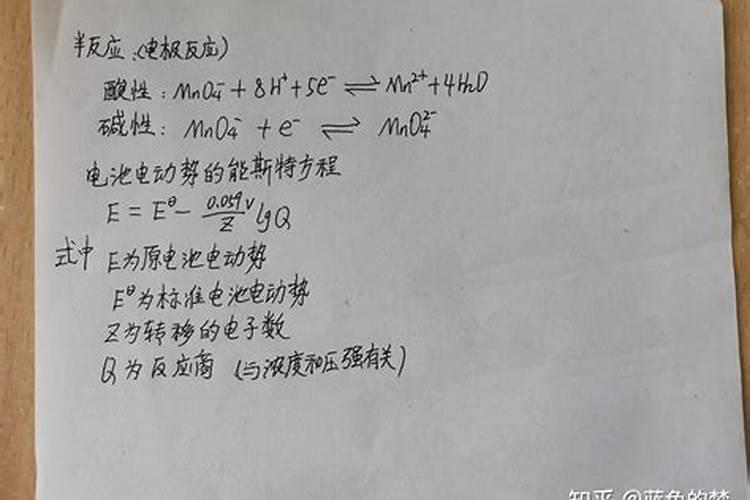 半反应（电极反应）
酸性：MnO₄⁻ + 8H⁺ + 5e⁻ ⇌ Mn²⁺ + 4H₂O
碱性：MnO₄⁻ + e⁻ ⇌ MnO₄²⁻
电池电动势的能斯特方程
E = E^θ − 0.059V/Z lgQ
式中 E为原电池电动势
E^θ为标准电池电动势
Z为转移的电子数
Q为反应商（与浓度和压强有关）
知乎 @蓝色的梦